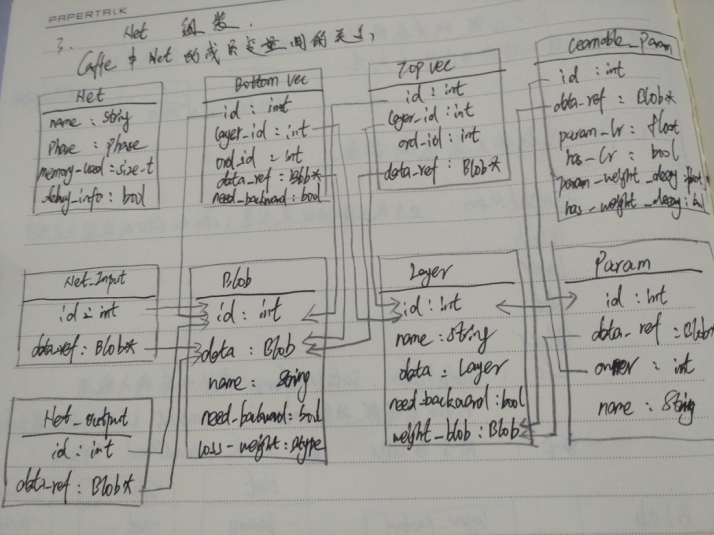 PAPERTALK
3. Net 组装.
Caffe 中 Net 的成员变量间的关系
Net
name : String
Phase : phase
memory-used = size-t
debug_info : bool
Bottom Vec
id : int
layer_id : int
ord_id : int
data_ref : Blob*
need_backward : bool
Top vec
id : int
layer_id : int
ord_id : int
data-ref : Blob*
Learnable_Param
id : int
data-ref : Blob*
param-lr : float
has-lr : bool
param-weight_decay : float
has-weight_decay : bool
Net_Input
id : int
data-ref : Blob*
Blob
id : int
data : Blob
name : String
need_backward : bool
loss-weight : Dtype
Layer
id : int
name : String
data : Layer
need_backward : bool
weight_blob : Blob
Param
id : int
data_ref : Blob*
owner : int
name : String
Net_output
id : int
data-ref : Blob*